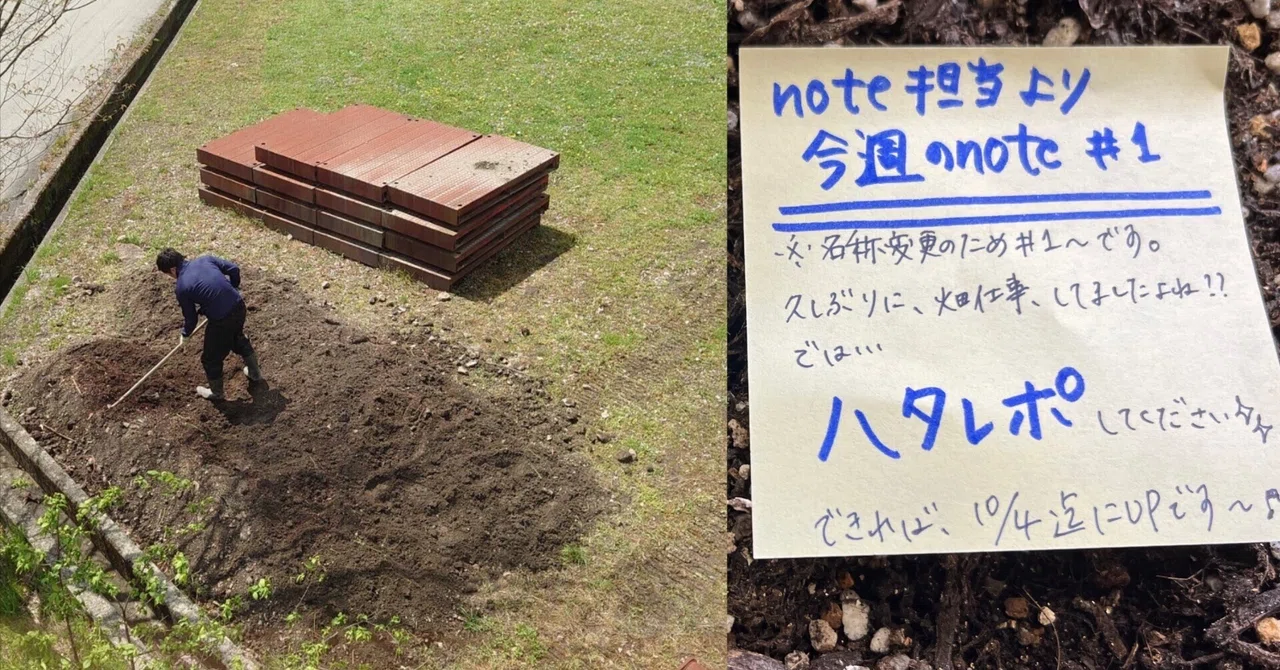 note担当より
今週のnote #1
※名称変更のため#1〜です。
久しぶりに、畑仕事、してましたよね!!
では…
ハタレポしてください☆☆
できれば、10/4迄にUPです〜♪